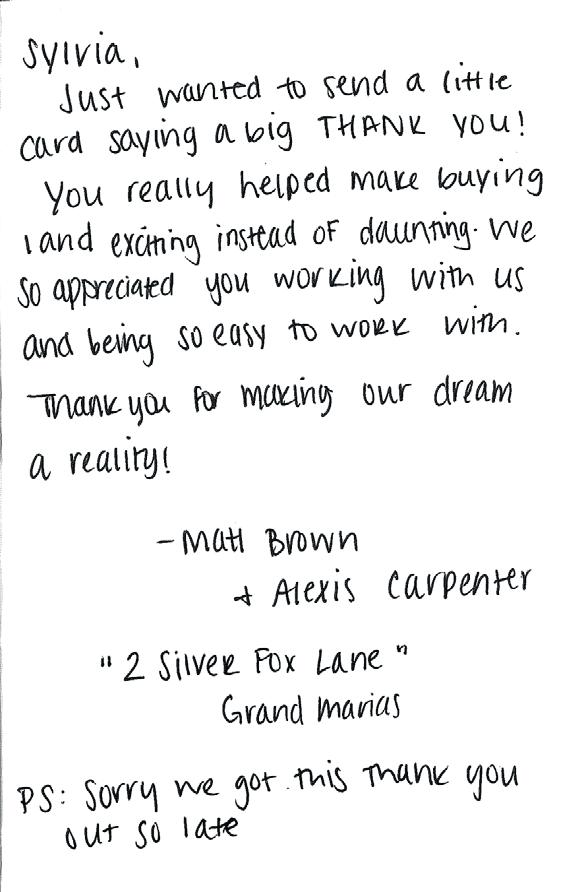 Sylvia,
Just wanted to send a little
card saying a big THANK YOU!
You really helped make buying
land exciting instead of daunting. We
so appreciated you working with us
and being so easy to work with.
Thank you for making our dream
a reality!
- Matt Brown
+ Alexis Carpenter
"2 Silver Fox Lane"
Grand Marias
PS: Sorry we got this thank you
out so late